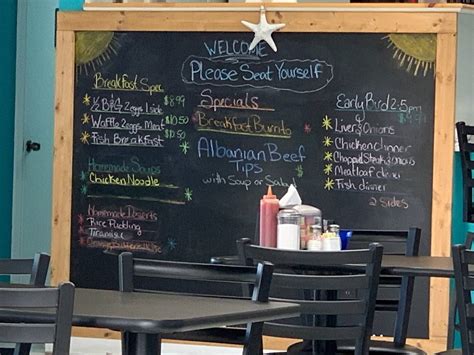 WELCOME
Please Seat Yourself
Breakfast Spec
½ B+G 2eggs 1side $8.99
Waffle 2eggs Meat $10.50
Fish Breakfast
Homemade Soups
Chicken Noodle
Homemade Desserts
Rice Pudding
Tiramisu
Specials
Breakfast Burrito
Albanian Beef
Tips
with Soup or Salad
Early Bird 2-5pm
Liver & Onions
Chicken dinner
Chopped Steak onions
Meatloaf dinner
Fish dinner
2 Sides